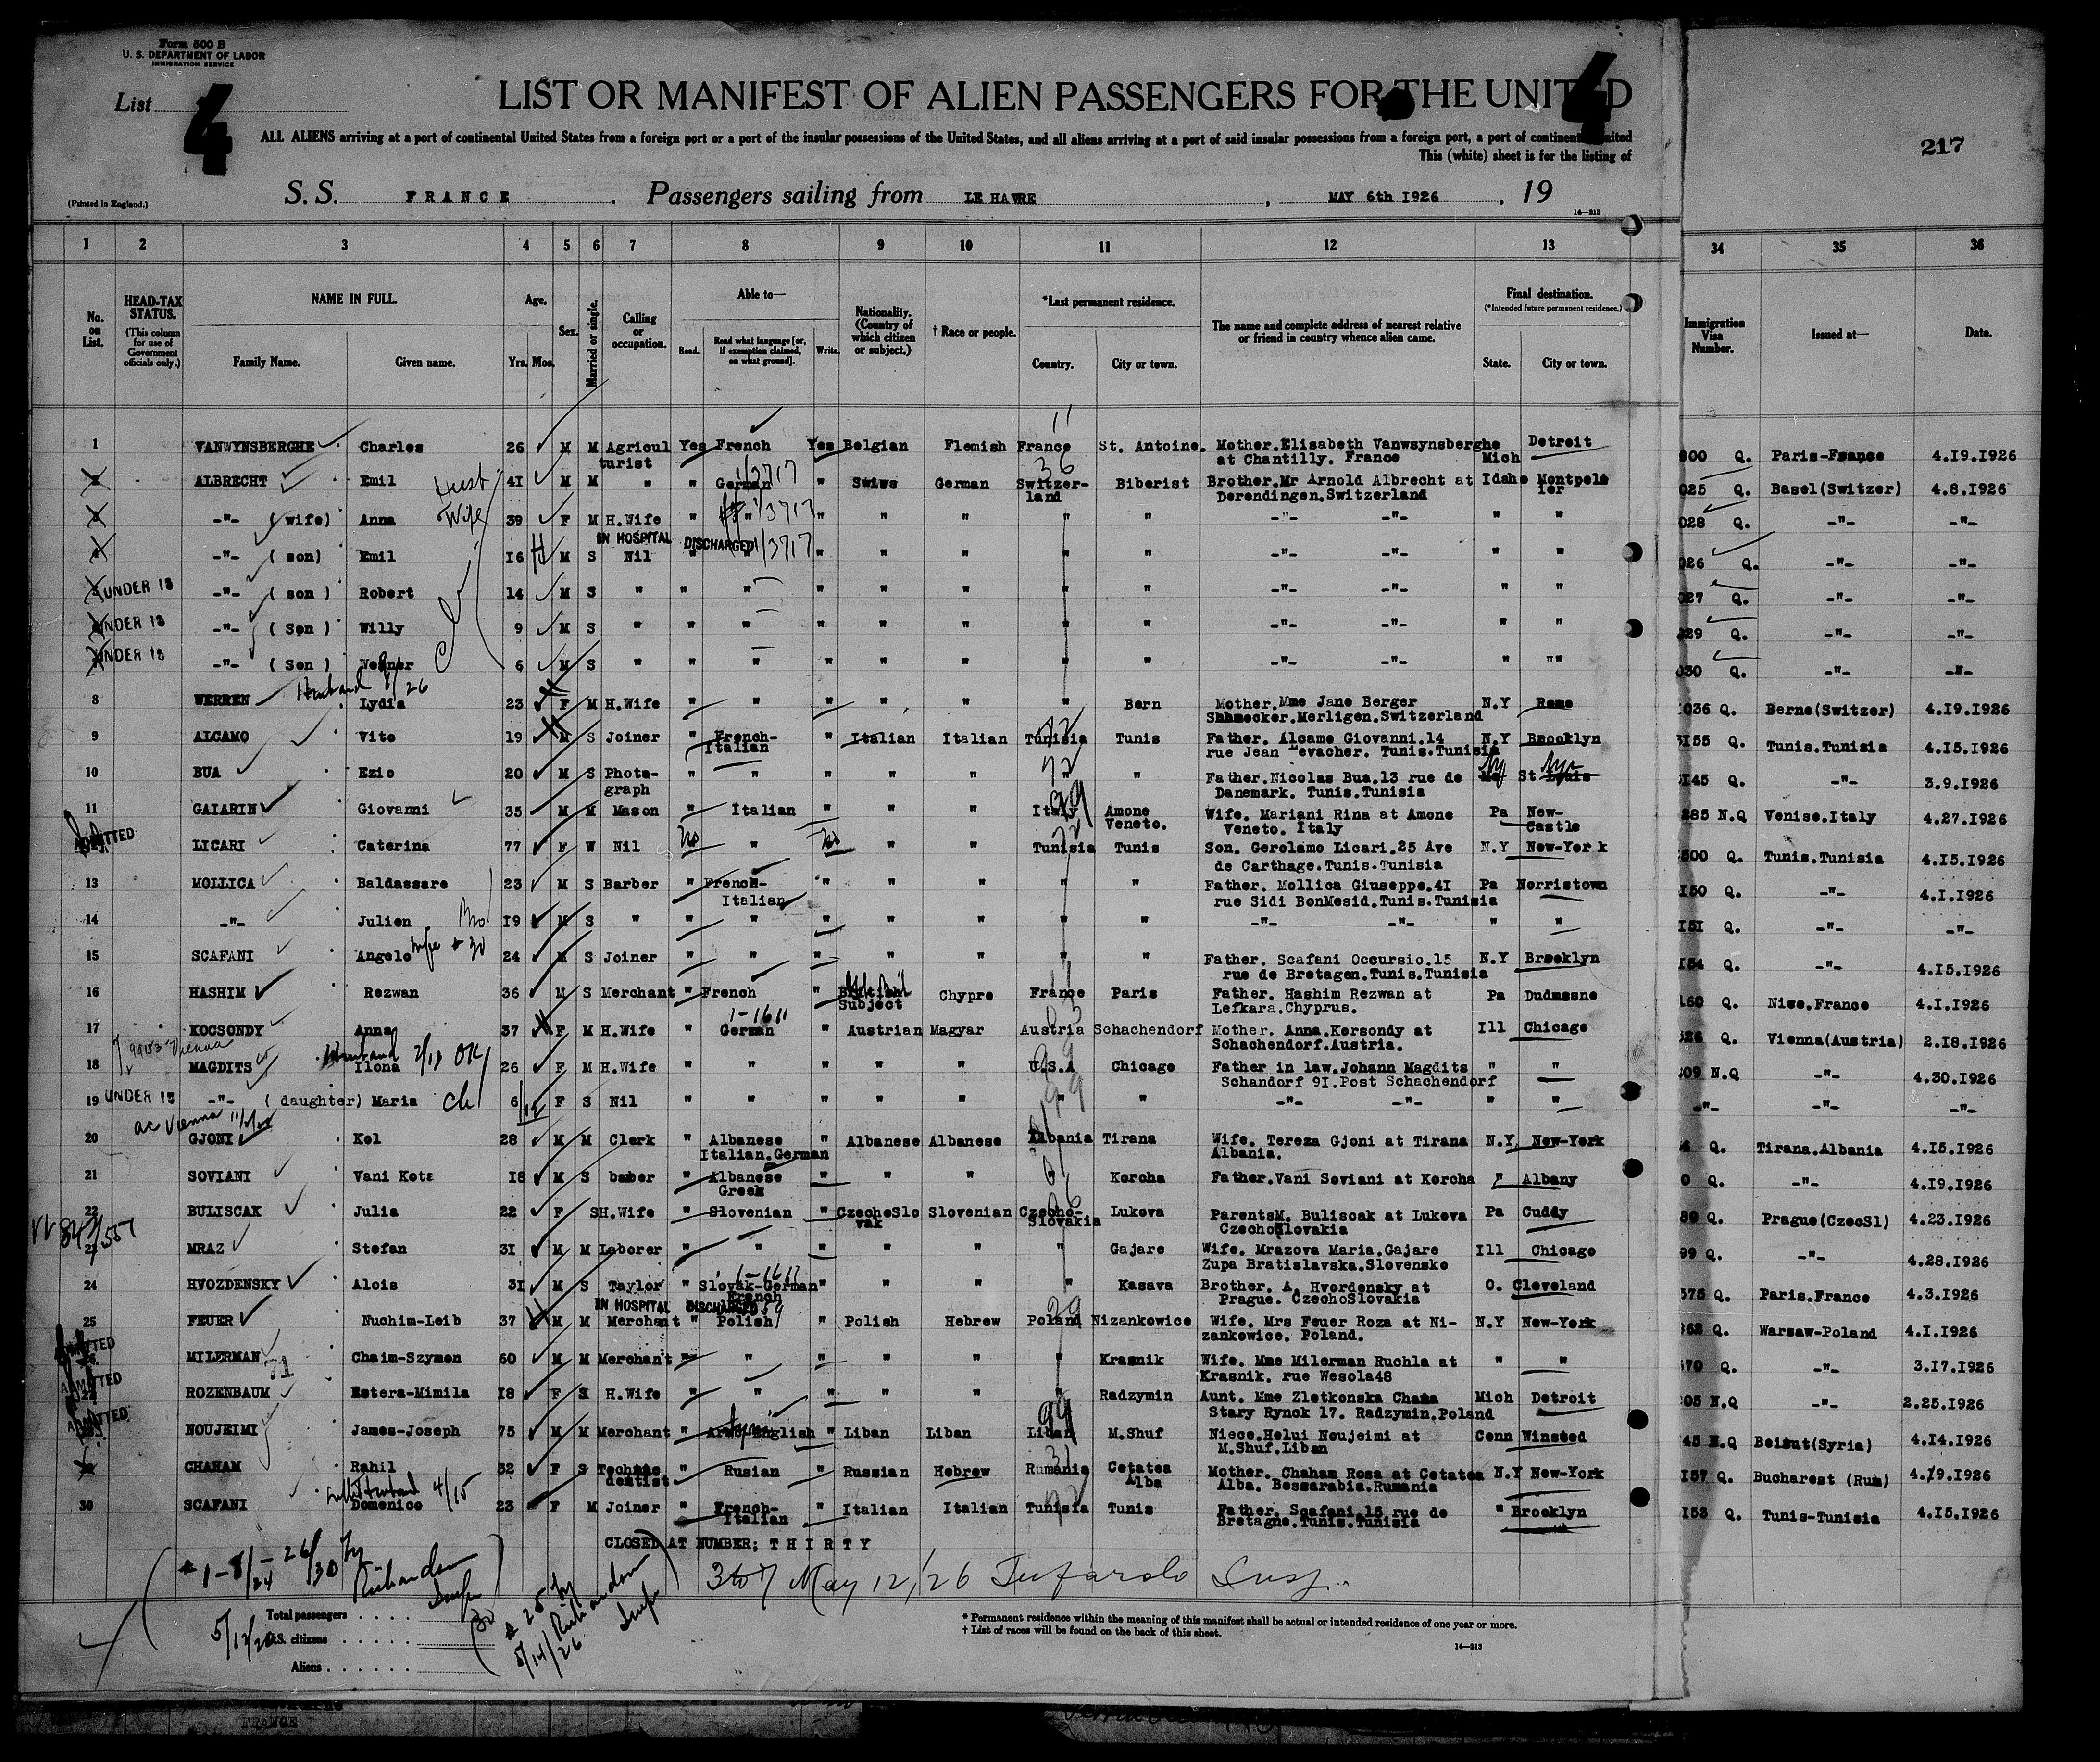 Form 500 B
U. S. DEPARTMENT OF LABOR
IMMIGRATION SERVICE
List 4
4
LIST OR MANIFEST OF ALIEN PASSENGERS FOR THE UNITED
ALL ALIENS arriving at a port of continental United States from a foreign port or a port of the insular possessions of the United States, and all aliens arriving at a port of said insular possessions from a foreign port, a port of continental United
This (white) sheet is for the listing of
217
(Printed in England.)
S. S. FRANCE. Passengers sailing from LE HAVRE, MAY 6th 1926, 19
14-213
1 2 3 4 5 6 7 8 9 10 11 12 13 34 35 36
No. on List.
HEAD-TAX STATUS.
(This column for use of Government officials only.)
NAME IN FULL.
Family Name. Given name.
Age.
Yrs. Mos.
Sex.
Married or single.
Calling or occupation.
Able to—
Read. Read what language [or, if exemption claimed, on what ground]. Write.
Nationality. (Country of which citizen or subject.)
† Race or people.
*Last permanent residence.
Country. City or town.
The name and complete address of nearest relative or friend in country whence alien came.
Final destination.
(*Intended future permanent residence.)
State. City or town.
Immigration Visa Number.
Issued at—
Date.
1 VANWYNSBERGHE Charles 26 M M Agricul turist Yes French Yes Belgian Flemish France St. Antoine. Mother.Elisabeth Vanwsynsberghe at Chantilly. France Mich Detroit 300 Q. Paris-France 4.I9.I926
ALBRECHT Emil 4I M M " " German " Swiss German Switzer-land Biberist Brother.Mr Arnold Albrecht at Derendingen.Switzerland Idaho Montpelier 025 Q. Basel(Switzer) 4.8.I926
-"- (wife) Anna 39 F M H.Wife " " " " " " " -"- -"- " " 028 Q. -"- -"-
IN HOSPITAL DISCHARGED
-"- (son) Emil I6 M S Nil " " " " " " " -"- -"- " " 026 Q. -"- -"-
UNDER 18 -"- (son) Robert 14 M S " " " " " " " " -"- -"- " " 027 Q. -"- -"-
UNDER 18 -"- (Son) Willy 9 M S " " " " " " " " -"- -"- " " 029 Q. -"- -"-
UNDER 18 -"- (Son) Werner 6 M S " " " " " " " " -"- -"- " "" 030 Q. -"- -"-
8 WERREN Lydia 23 F M H.Wife " " " " " " Bern Mother.Mme Jane Berger Shhmocker.Merligen.Switzerland N.Y Rome 036 Q. Berne(Switzer) 4.I9.I926
9 ALCAMO Vito 19 M S Joiner " French-Italian " Italian Italian Tunisia Tunis Father. Alcamo Giovanni.14 rue Jean Levacher. Tunis.Tunisia N.Y Brooklyn 3I55 Q. Tunis.Tunisia 4.I5.I926
10 BUA Ezio 20 M S Photo-graph " " " " " " Father.Nicolas Bua.13 rue de Danemark. Tunis.Tunisia St Louis 3I45 Q. -"- 3.9.I926
11 GAIARIN Giovanni 35 M M Mason " Italian " " " Italy Amone Veneto. Wife. Mariani Rina at Amone Veneto. Italy Pa New-Castle 285 N.Q Venise.Italy 4.27.I926
ADMITTED LICARI Caterina 77 F W Nil No " No " " Tunisia Tunis Son. Gerolamo Licari.25 Ave de Carthage.Tunis.Tunisia N.Y New-York 500 Q. Tunis.Tunisia 4.I5.I926
13 MOLLICA Baldassare 23 M S Barber " French-Italian " " " " " Father. Mollica Giuseppe.4I rue Sidi BonMesid.Tunis.Tunisia Pa Norristown I50 Q. -"- 4.I.I926
14 -"- Julien Bro I9 M S " " " " " " " " -"- -"- " " I5I Q. -"- -"-
15 SCAFANI Angelo 24 M S Joiner " " " " " " " Father. Scafani Occursio.15 rue de Bretagen.Tunis.Tunisia N.Y Brooklyn I54 Q. -"- 4.I5.I926
16 HASHIM Rezwan 36 M S Merchant " French " British Subject Chypre France Paris Father. Hashim Rezwan at Lefkara.Chyprus. Pa Dudmesne 160 Q. Nice.France 4.I.I926
17 KOCSONDY Anna 37 F M H.Wife " German " Austrian Magyar Austria Schachendorf Mother. Anna.Korsondy at Schachendorf.Austria. Ill Chicago 526 Q. Vienna(Austria) 2.I8.I926
18 MAGDITS Ilona Husband 2/13 OK 26 F M H.Wife " " " " " U.S.A Chicago Father in law.Johann Magdits Schandorf 9I.Post Schachendorf " " 09 N.Q -"- 4.30.I926
19 UNDER 18 -"- (daughter) Maria ch 6/12 F S Nil " " -"- -"- " " -"- -"- -"-
20 GJONI Kol 28 M M Clerk " Albanese Italian.German " Albanese Albanese Albania Tirana Wife. Tereza Gjoni at Tirana Albania. N.Y. New-York Q. Tirana.Albania 4.I5.I926
21 SOVIANI Vani Kota I8 M S baber " Albanese Greek " " " " Korcha Father.Vani Soviani at Korcha " Albany 0 Q. -"- 4.I9.I926
22 BULISCAK Julia 22 F S H.Wife " Slovenian " CzechoSlo vak Slovenian Czecho-Slovakia Lukova ParentsM. Buliscak at Lukova CzechoSlovakia Pa Cuddy 80 Q. Prague(CzecSl) 4.23.I926
MRAZ Stefan 3I M M Laborer " " " " " " Gajare Wife. Mrazova Maria.Gajare Zupa Bratislavska.Slovensko Ill Chicago 99 Q. -"- 4.28.I926
24 HVOZDENSKY Alois 3I M S Taylor " Slovak-German French " " " " Kasava Brother. A. Hvordensky at Prague. CzechoSlovakia O. Cleveland 375 Q. Paris.France 4.3.I926
IN HOSPITAL DISCHARGED
25 FEUER Nuchim-Leib 37 M M Merchant " Polish " Polish Hebrew Poland Nizankowice Wife. Mrs Feuer Roza at Ni-zankowice. Poland. N.Y New-York 368 Q. Warsaw-Poland 4.I.I926
ADMITTED MILERMAN Chaim-Szymon 60 M M Merchant " " " " " " Krasnik Wife. Mme Milerman Ruchla at Krasnik. rue Wesola48 " " 570 Q. -"- 3.I7.I926
ADMITTED ROZENBAUM Estera-Mimila I8 F S H.Wife " " " " " " Radzymin Aunt. Mme Zlotkonska Chana Stary Rynok 17. Radzymin.Poland Mich Detroit 05 N.Q -"- 2.25.I926
ADMITTED NOUJEIMI James-Joseph 75 M M Merchant " English " Liban Liban Liban M.Shuf Niece.Helui Noujeimi at M.Shuf.Liban Conn Winsted 45 N.Q Beirut(Syria) 4.I4.I926
CHAHAM Rahil 32 F S Techno dentist " Rusian " Russian Hebrew Rumania Cetatea Alba Mother. Chaham Rosa at Cetatea Alba. Bessarabia.Rumania N.Y New-York I57 Q. Bucharest (Rum) 4.I9.I926
30 SCAFANI Domenico 23 F M Joiner " French-Italian " Italian Italian Tunisia Tunis Father. Scafani.15 rue de Bretagne.Tunis.Tunisia " Brooklyn I53 Q. Tunis-Tunisia 4.I5.I926
CLOSED AT NUMBER; THIRTY
3 to 7 May 12/26 Insp.
Total passengers . . . .
U.S. citizens . . . . .
Aliens . . . . . .
* Permanent residence within the meaning of this manifest shall be actual or intended residence of one year or more.
† List of races will be found on the back of this sheet.
14-213
FRANCE